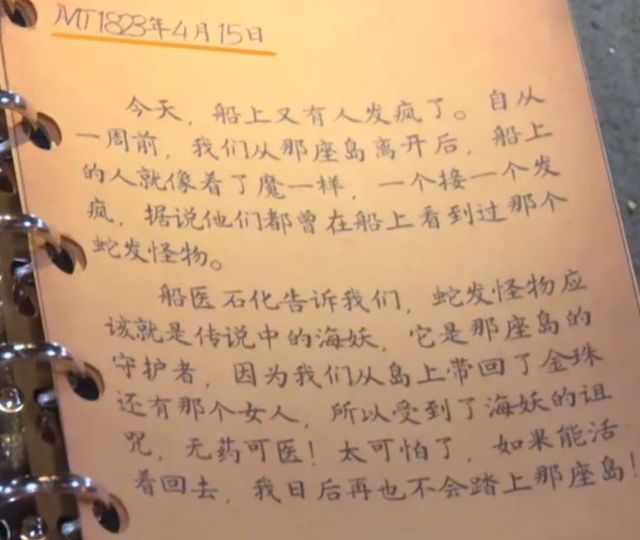 MT1823年4月15日
今天，船上又有人发疯了。自从
一周前，我们从那座岛离开后，船上
的人就像着了魔一样，一个接一个发
疯，据说他们都曾在船上看到过那个
蛇发怪物。
船医石化告诉我们，蛇发怪物应
该就是传说中的海妖，它是那座岛的
守护者，因为我们从岛上带回了金珠
还有那个女人，所以受到了海妖的诅
咒，无药可医！太可怕了，如果能活
着回去，我日后再也不会踏上那座岛！